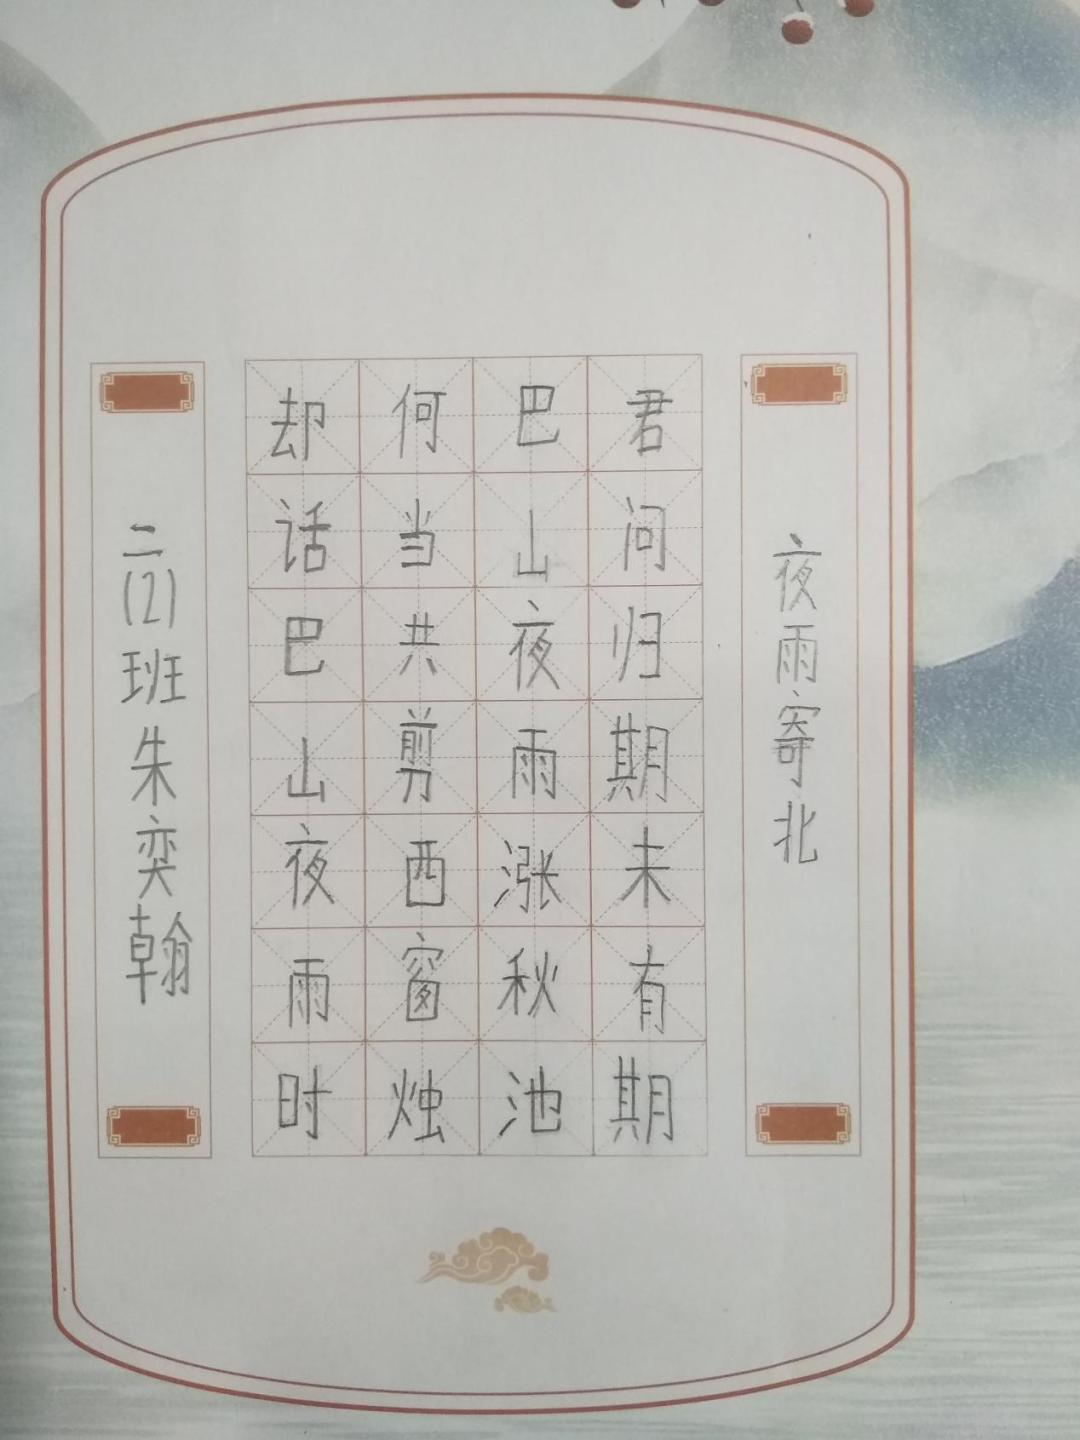 夜雨寄北
君问归期未有期
巴山夜雨涨秋池
何当共剪西窗烛
却话巴山夜雨时
二(2)班朱奕翰